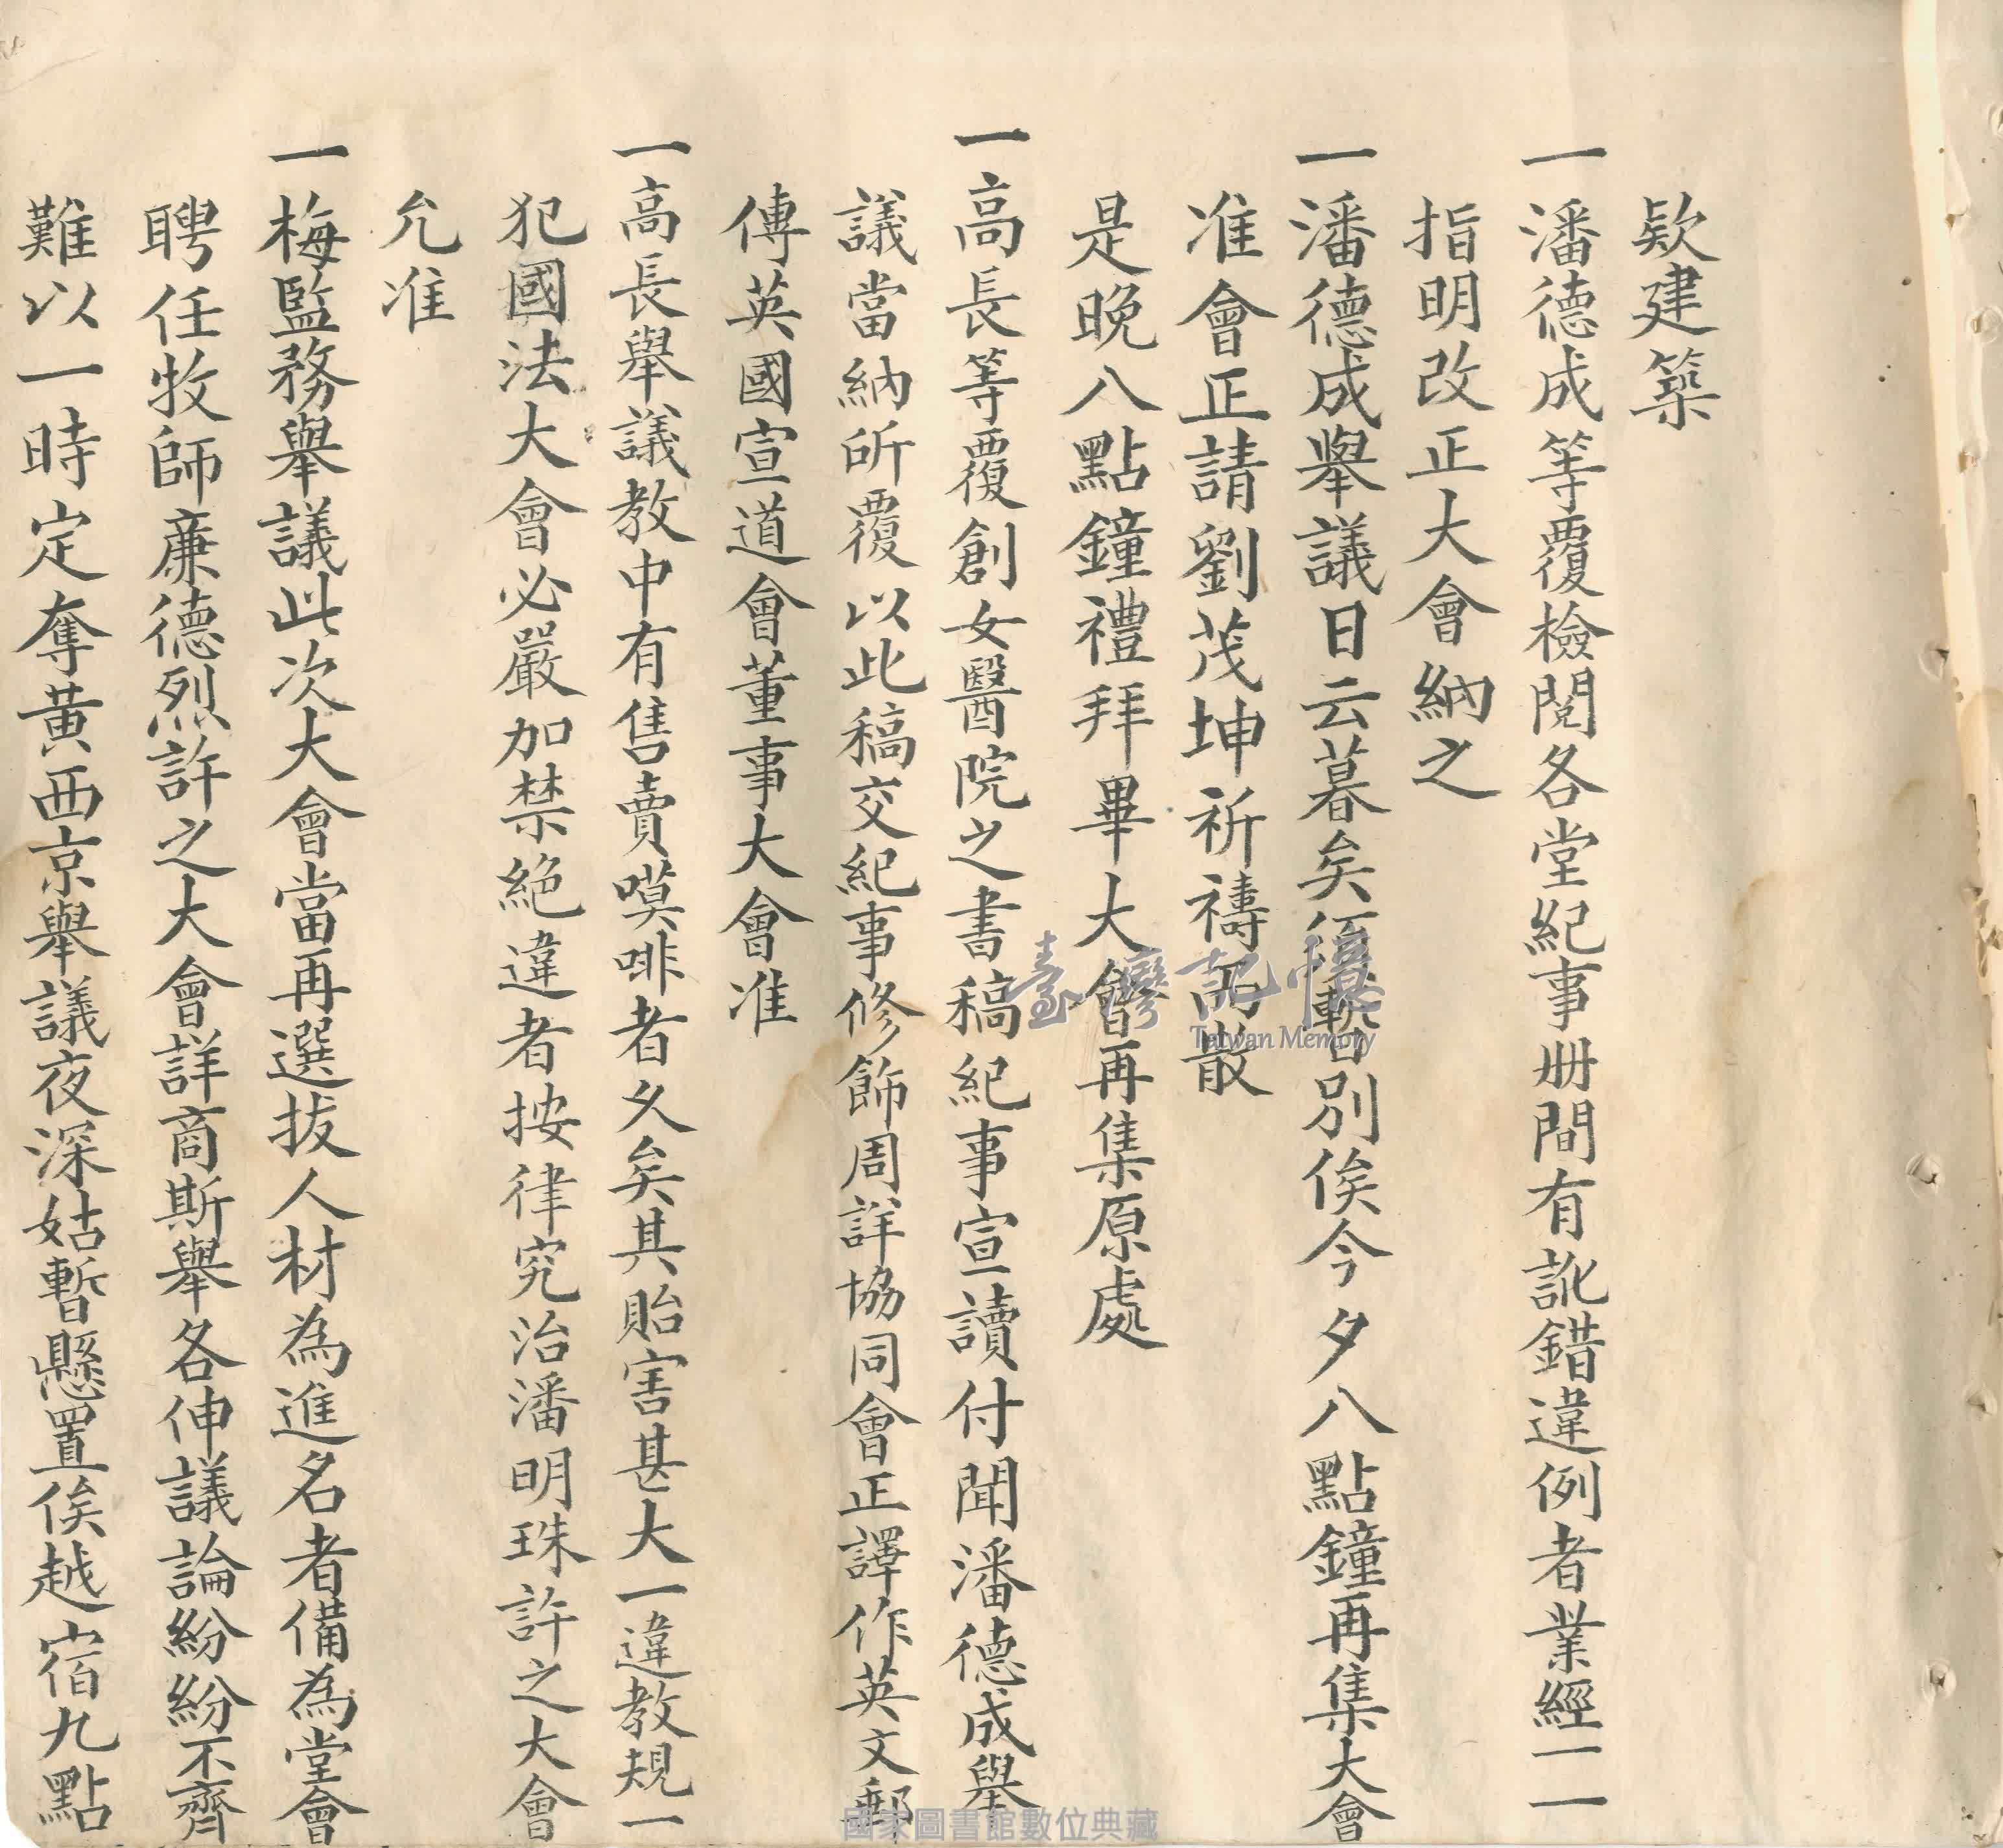 欵建築
一潘德成等覆檢閱各堂紀事册間有訛錯違例者業經一一
指明改正大會納之
一潘德成舉議日云暮矣須暫別俟今夕八點鐘再集大會
准會正請劉茂坤祈禱而散
是晚八點鐘禮拜畢大會再集原處
一高長等覆創女醫院之書稿紀事宣讀付聞潘德成舉
議當納所覆以此稿交紀事修飾周詳協同會正譯作英文郵
傳英國宣道會董事大會准
一高長舉議教中有售賣嘆啡者久矣其貽害甚大一違教規一
犯國法大會必嚴加禁絕違者按律究治潘明珠許之大會
允准
一梅監務舉議此次大會當再選拔人材為進名者備為堂會
聘任牧師廉德烈許之大會詳商斯舉各伸議論紛紛不齊
難以一時定奪黃西京舉議夜深姑暫懸置俟越宿九點
臺灣記憶
Taiwan Memory
國家圖書館數位典藏